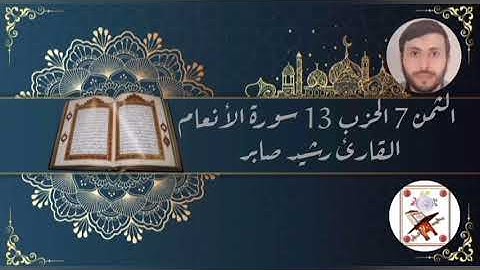 الثمن 7 الحزب 13 سورة الأنعام
القارئ رشيد صابر